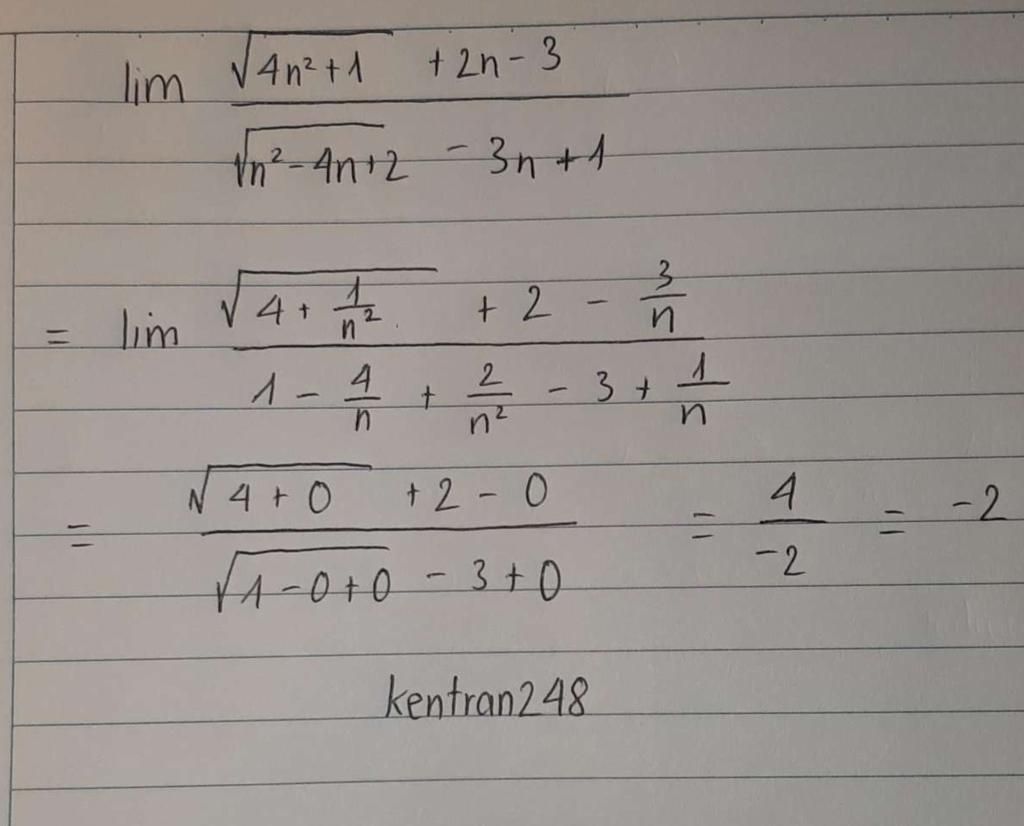 lim (√(4n²+1) + 2n - 3) / (√(n²-4n+2) - 3n + 1)
= lim (√(4 + 1/n²) + 2 - 3/n) / (1 - 4/n + 2/n² - 3 + 1/n)
= (√(4+0) + 2 - 0) / (√(1-0+0) - 3 + 0) = 4/-2 = -2
kentran248